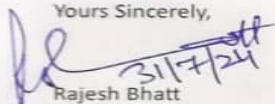 Yours Sincerely,
31/7/24
Rajesh Bhatt